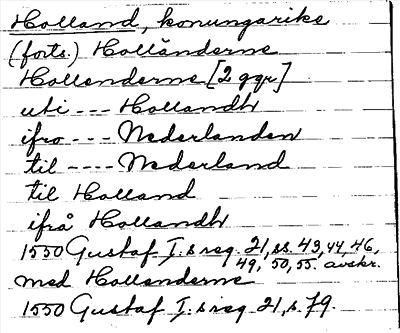 Holland, konungarike
(forts.) Holländerne
Hollenderne [2 ggr]
uti --- Hollandh
ifro --- Nederlanden
till ---- Nederland
till Holland
ifrå Hollandh
1550 Gustaf I:s reg. 21, ss. 43, 44, 46,
49, 50, 55. avskr.
med Hollenderne
1550 Gustaf I:s reg. 21, s. 79.